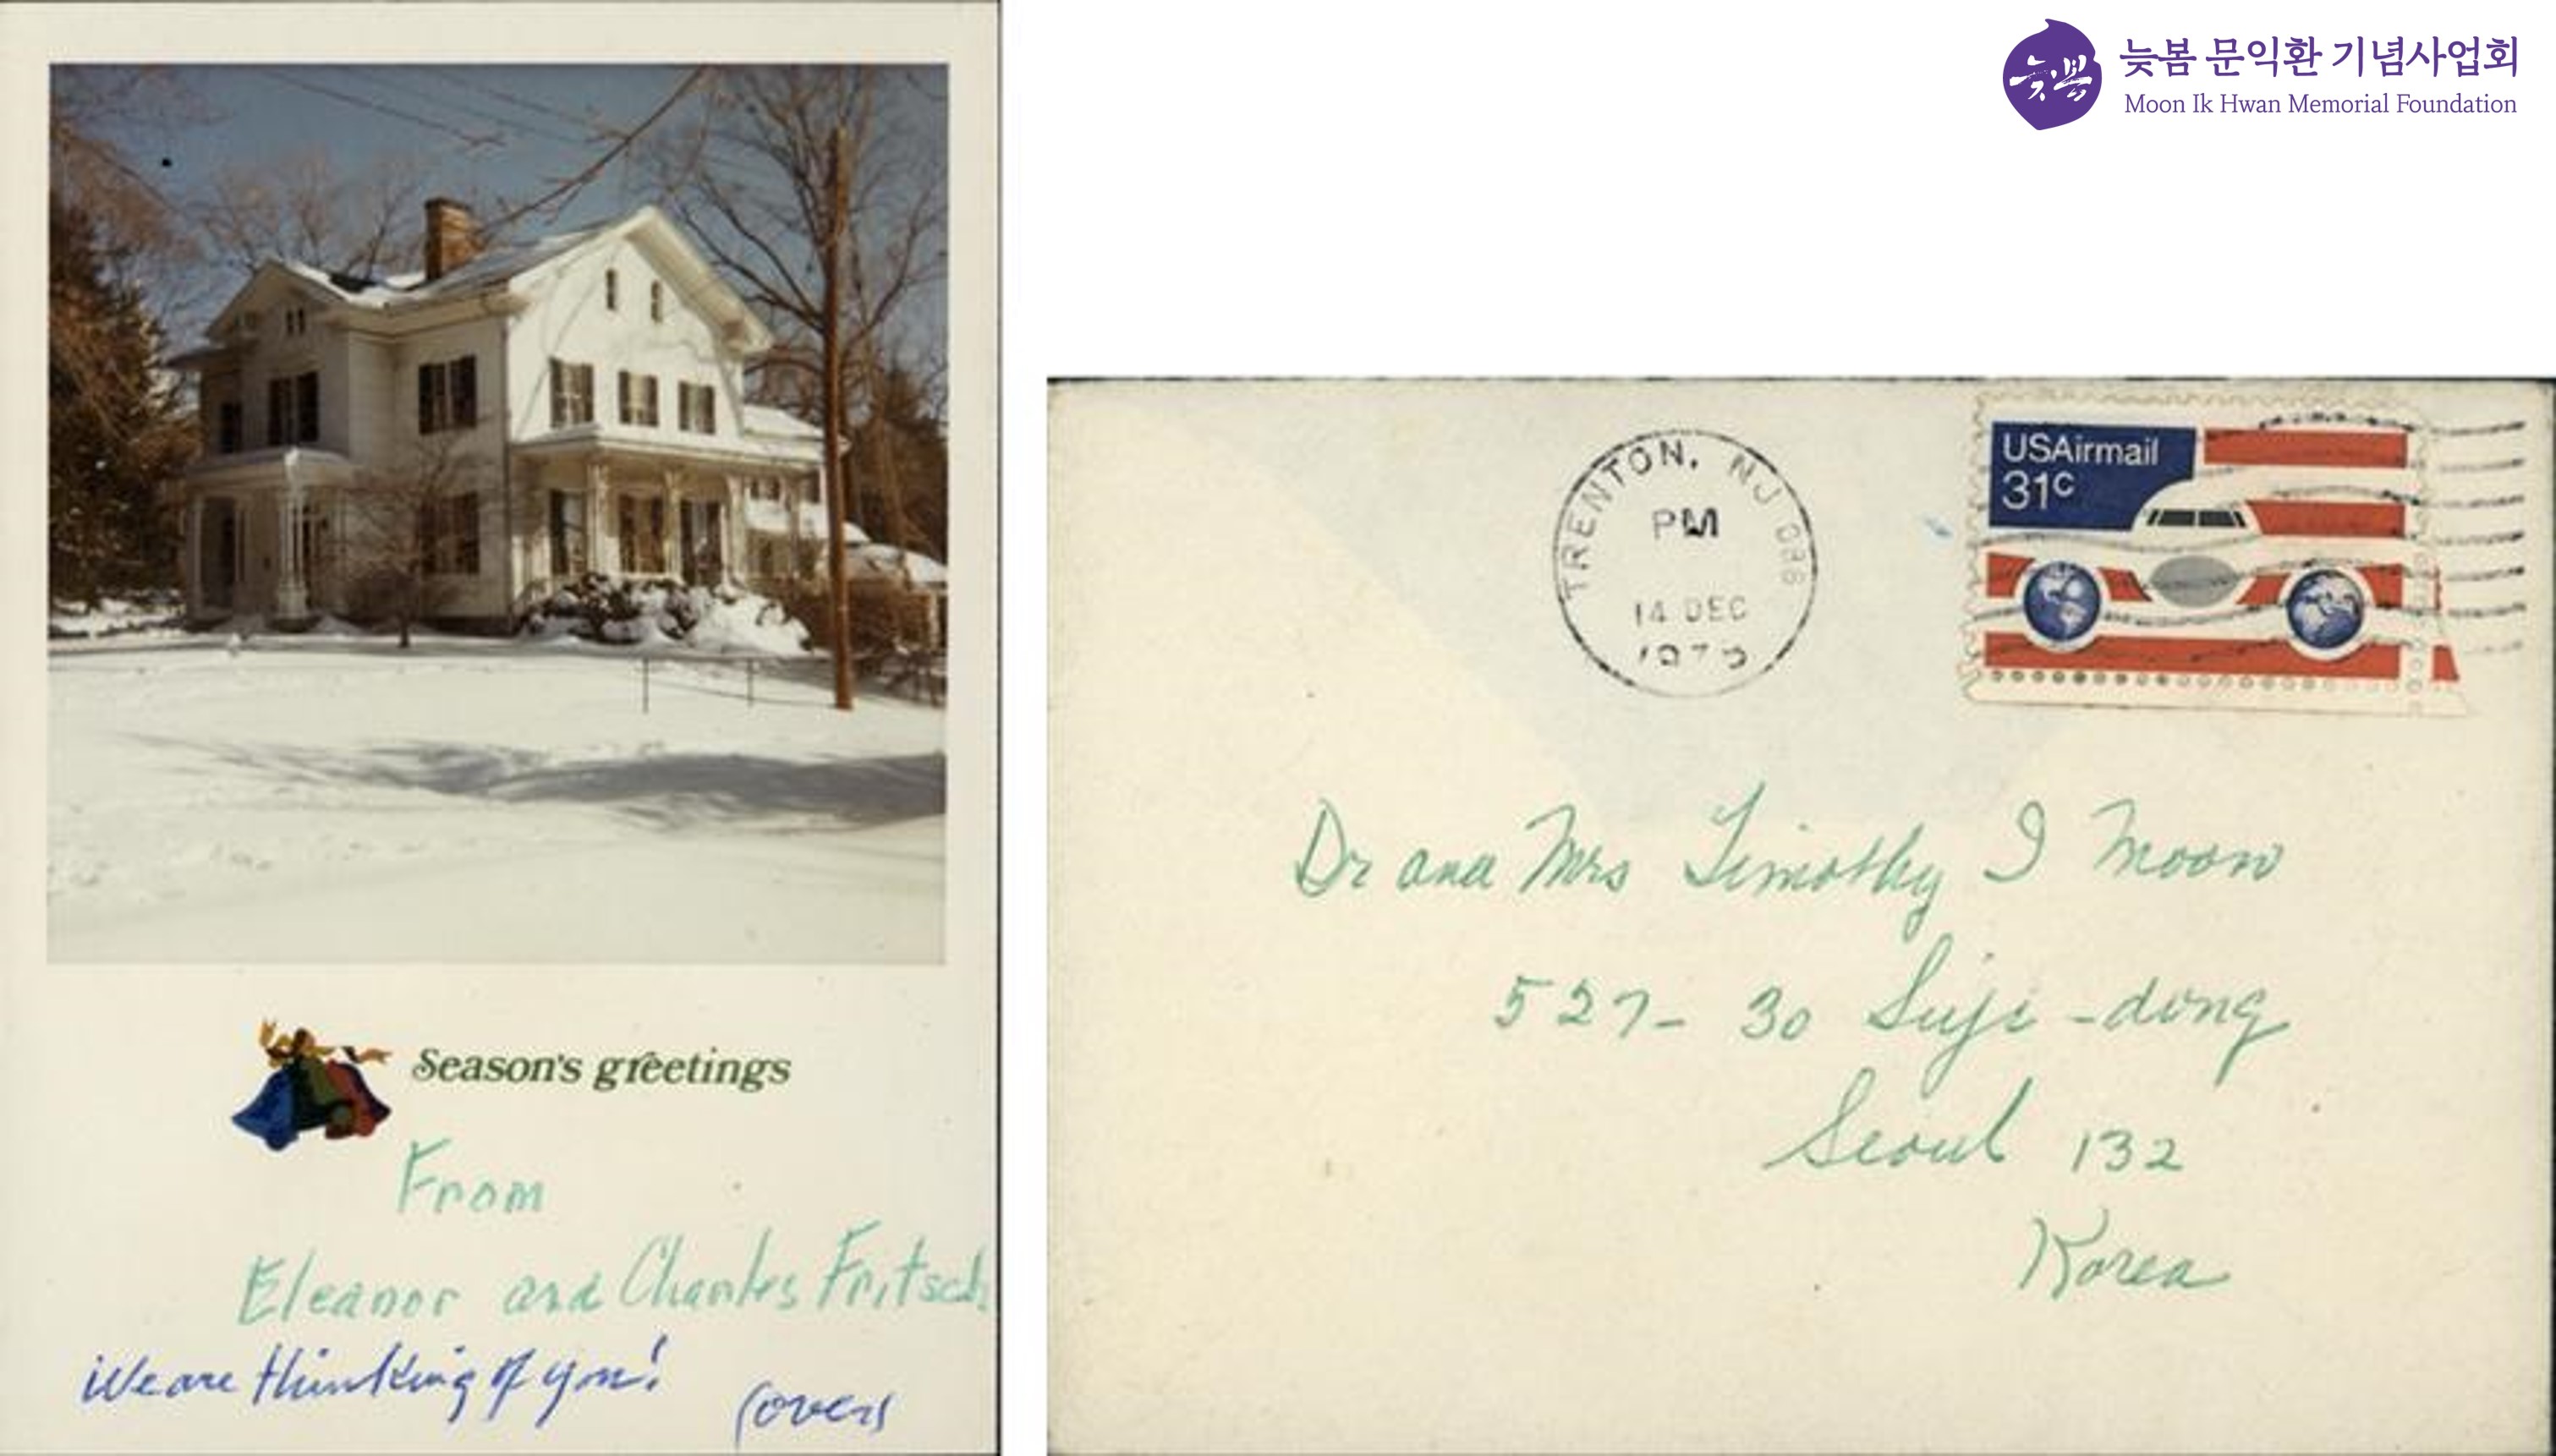 늦봄 문익환 기념사업회
Moon Ik Hwan Memorial Foundation
늦봄
Season's greetings
From
Eleanor and Charles Fritsch
We are thinking of you!
(over)
TRENTON, NJ
PM
14 DEC
USAirmail
31c
Dr and Mrs Timothy I Moon
527- 30 Suji -dong
Seoul 132
Korea